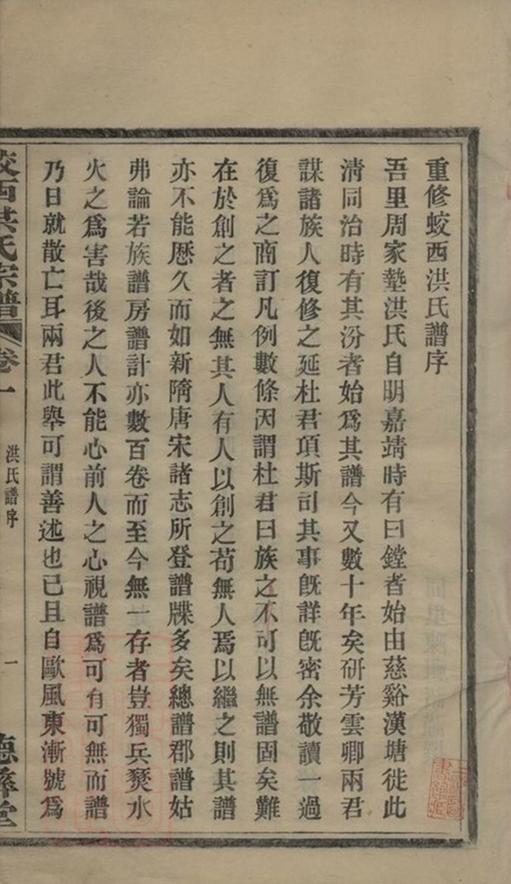 重修蛟西洪氏譜序
吾里周家墊洪氏自明嘉靖時有曰鏜者始由慈谿漢塘徙此
清同治時有其汾者始爲其譜今又數十年矣硏芳雲卿兩君
謀諸族人復修之延杜君項斯司其事旣詳旣密余敬讀一過
復爲之商訂凡例數條因謂杜君曰族之不可以無譜固矣難
在於創之者之無其人有人以創之苟無人焉以繼之則其譜
亦不能歷久而如新隋唐宋諸志所登譜牒多矣總譜郡譜姑
弗論若族譜房譜計亦數百卷而至今無一存者豈獨兵燹水
火之爲害哉後之人不能心前人之心視譜爲可有可無而譜
乃日就散亡耳兩君此舉可謂善述也已且自歐風東漸號爲
蛟西洪氏宗譜
卷一
洪氏譜序
一